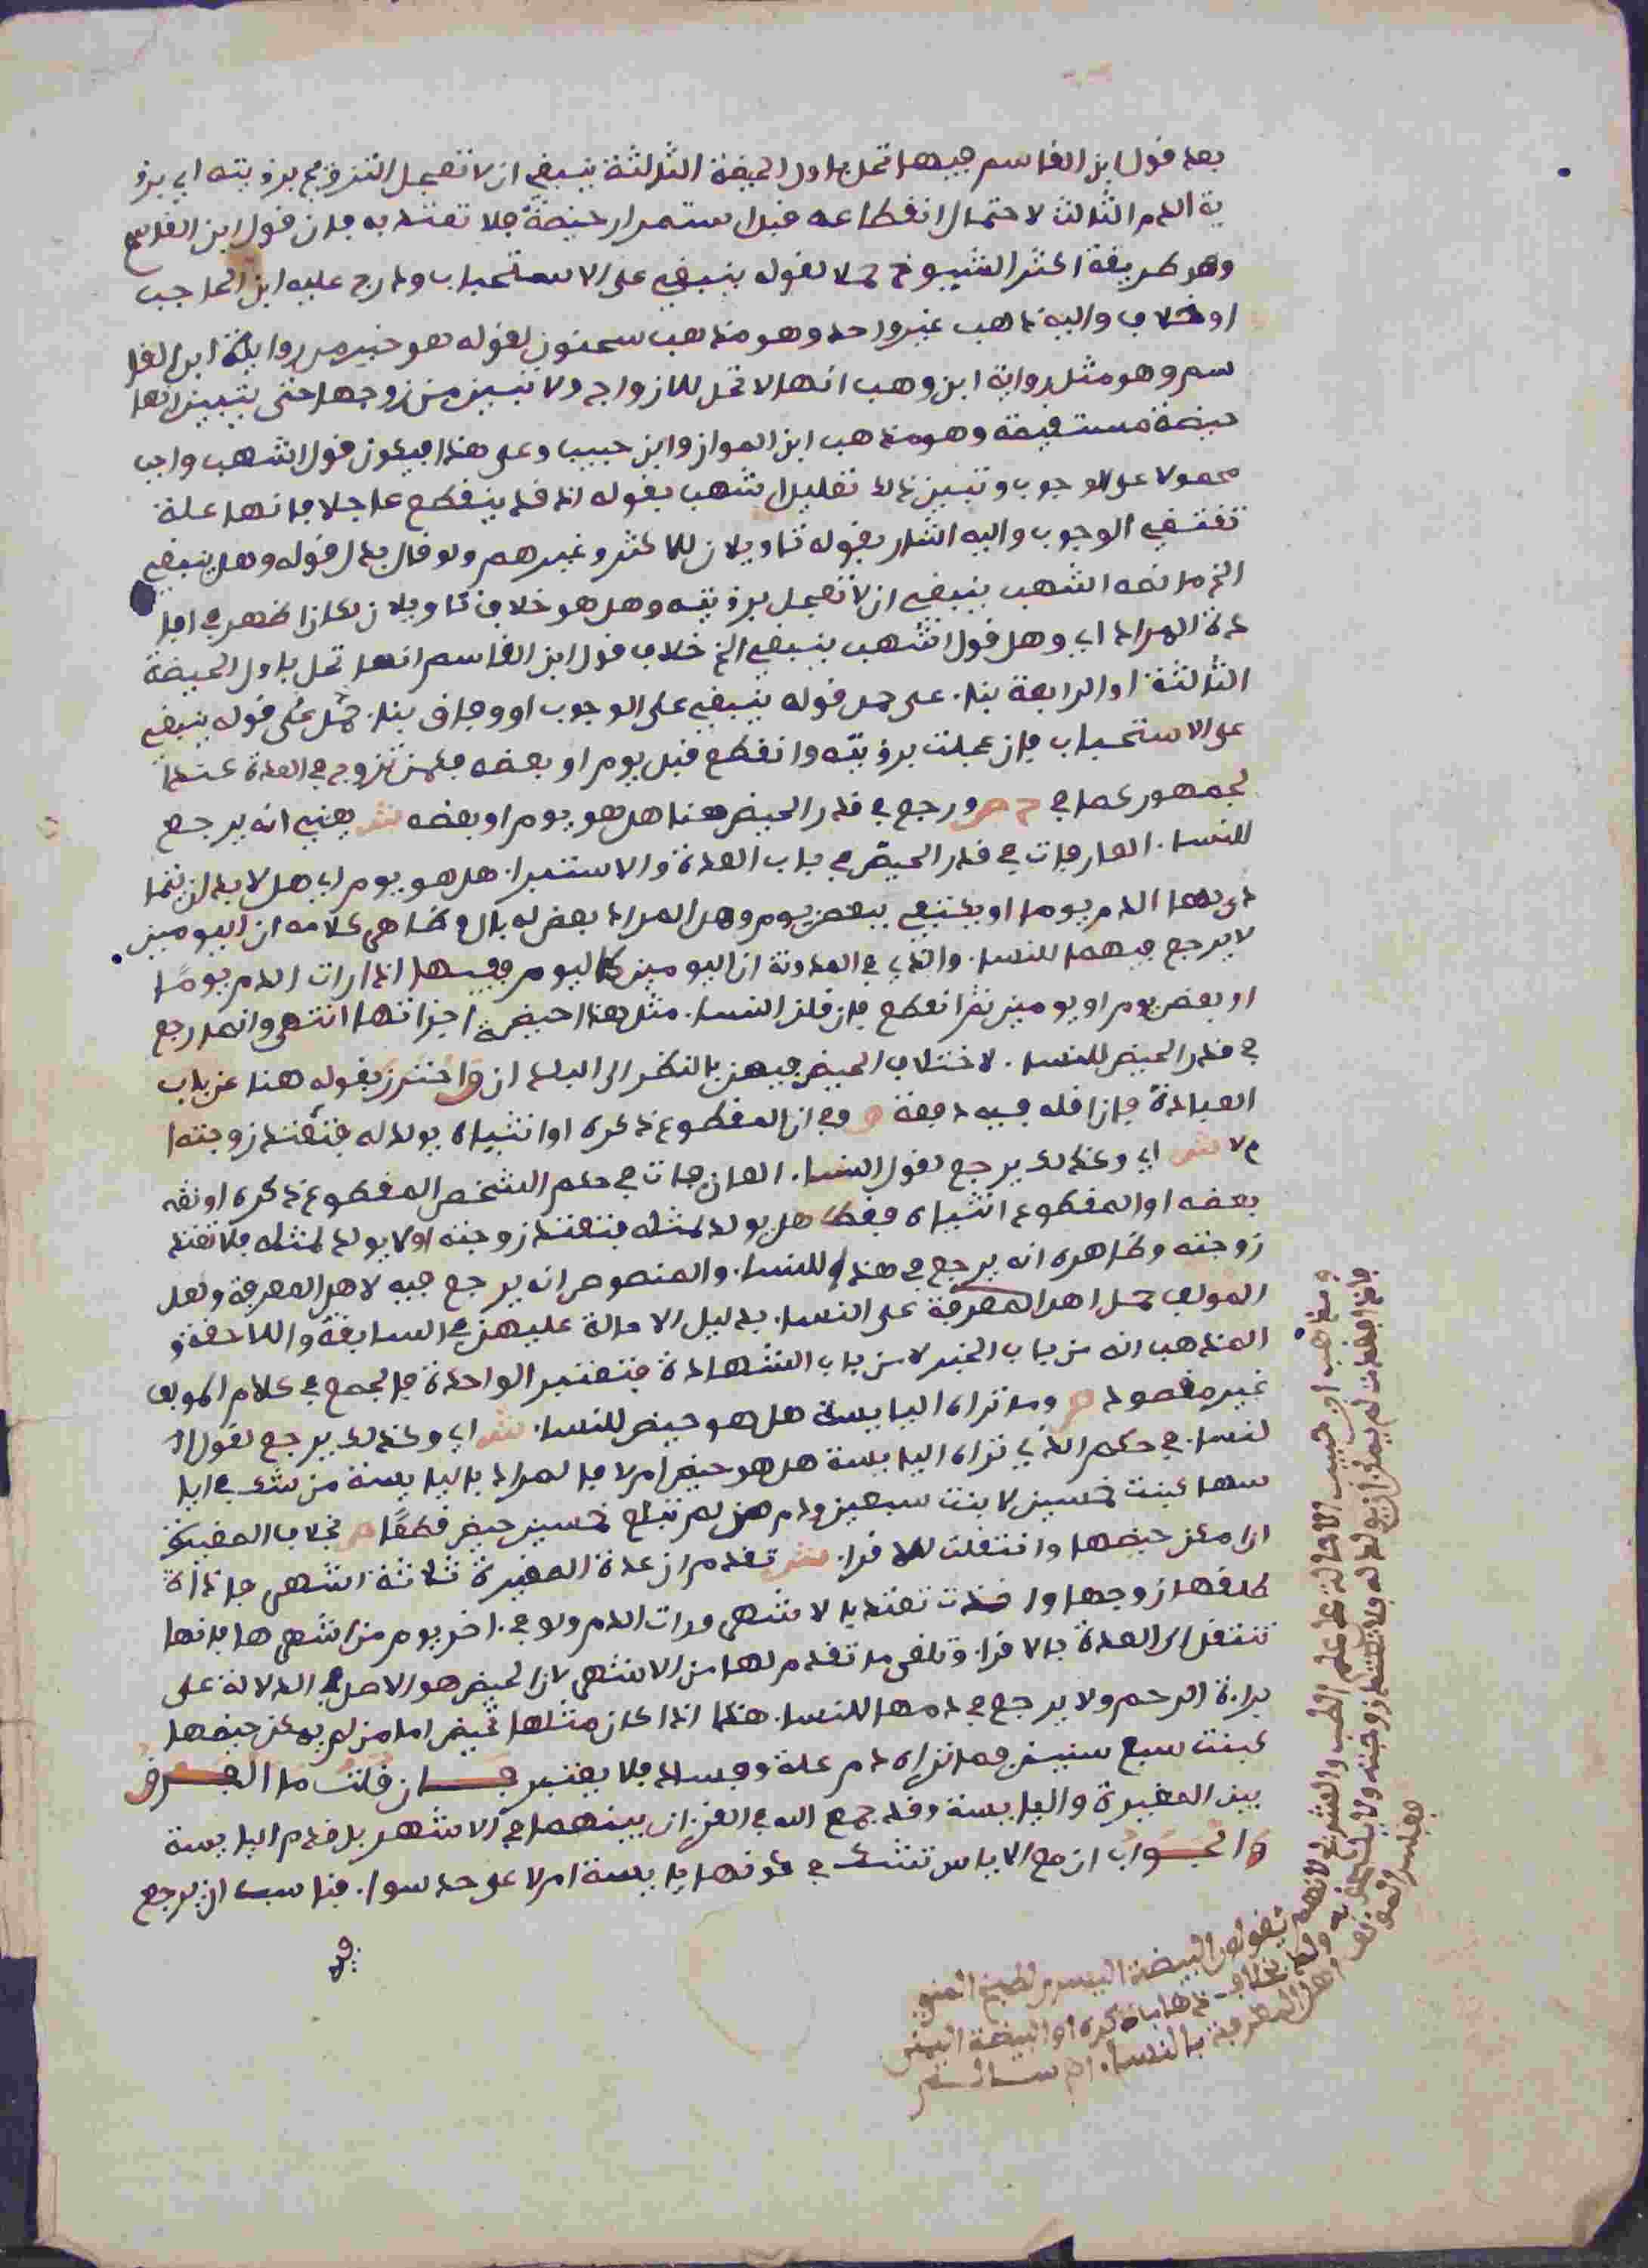 بعد قول ابن القاسم فيها تحل باول الحيضة الثالثة ينبغي ان لا تعجل التزويج برؤيته اي برؤ
ية الدم الثالث لاحتمال انقطاعه قبل استمرار حيضة فلا تعتد به فان قول ابن القاسم
وهو طريقة اكثر الشيوخ حملا لقوله ينبغي على الاستحباب ودرج عليه ابن الحاجب
او خلاف واليه ذهب غير واحد وهو مذهب سحنون لقوله هو خير من رواية ابن القا
سم وهو مثل رواية ابن وهب انها لا تحل للازواج ولا تبين من زوجها حتى يتبين انها
حيضة مستقيمة وهو مذهب ابن المواز وابن حبيب وعلى هذا فيكون قول اشهب واجب
محمولا على الوجوب وتبين ذلك تعليل اشهب بقوله اذ قد ينقطع عاجلا فانها علة
تقتضي الوجوب واليه اشار بقوله تاويلان للاكثر وغيرهم ولو قال بدل قوله وهل ينبغي
الخ ما نصه اشهب ينبغي ان لا تعجل برؤيته وهل هو خلاف تاويلان لكان اظهر في افا
دة المراد اي وهل قول اشهب ينبغي الخ خلاف قول ابن القاسم انها تحل باول الحيضة
الثالثة او الرابعة بنا. على حمل قوله ينبغي على الوجوب او وفاق بنا. حمل على قوله ينبغي
على الاستحباب فان عجلت برؤيته وانقطع قبل يوم او بعضه فكمن تزوج في العدة عند ا
لجمهور كما في ح ص ورجع في قدر الحيض هنا هل هو يوم او بعضه ش يعني انه يرجع
للنسا. العارفات في قدر الحيض في باب العدة والاستبرا. هل هو يوم اي هل لا بد ان يتما
دى بها الدم يوما او يكتفي ببعض يوم وهل المراد بعض له بال وظاهر كلامه ان اليومين
لا يرجع فيهما للنسا. والذي في المدونة ان اليومين كاليوم ففيها اذا رات الدم يوما
او بعض يوم او يومين ثم انقطع فان قلن النسا. مثل هذا حيضة اجزاتها انتهى وانما رجع
في قدر الحيض للنسا. لاختلاف الحيض فيهن بالنظر الى البلدان واحترز بقوله هنا عن باب
العبادة فان اقله فيه دفعة ص وفي ان المقطوع ذكره او انثياه يولد له فتعتد زوجته ا
م لا ش اي وكذلك يرجع لقول النسا. العارفات في حكم الشخص المقطوع ذكره او
بعضه او المقطوع انثياه فقط هل يولد لمثله فتعتد زوجته او لا يولد لمثله فلا تعتد
زوجته وظاهره انه يرجع في هذا للنسا. والمنصوص انه يرجع فيه لاهل المعرفة ولعل
المولف حمل اهل المعرفة على النسا. بدليل الاحالة عليهن في السابقة واللاحقة و
المذهب انه من باب الخبر لا من باب الشهادة فتعتبر الواحدة فالجمع في كلام المولف
غير مقصود ص وما تراه اليايسة هل هو حيض للنسا. ش اي وكذلك يرجع لقول ا
لنسا. في حكم الذي تراه اليايسة هل هو حيض ام لا فالمراد باليايسة من شك في ايا
سها كبنت خمسين لا بنت سبعين ودم من لم تبلغ خمسين حيض قطعا ص بخلاف الصغيرة
ان امكن حيضها وانتقلت للاقرا. ش تقدم ان عدة الصغيرة ثلاثة اشهر فاذا
طلقها زوجها واخذت تعتد بالاشهر ورات الدم ولو في. اخر يوم من اشهرها فانها
تنتقل الى العدة بالاقرا. وتلغى ما تقدم لها من الاشهر لان الحيض هو الاصل في الدلالة على
براءة الرحم ولا يرجع في دمها للنسا. هذا اذا كان مثلها تحيض اما من لم يمكن حيضها
كبنت سبع سنين فما تراه دم علة وفساد فلا يعتبر فان قلت ما الفرق
بين الصغيرة واليايسة وقد جمع الله في القرءان بينهما في الاشهر بل قدم اليايسة
والجواب ان مع الاياس تشك في كونها يايسة ام لا على حد سوا. فناسب ان يرجع
فيه
ومذهب ابن حبيب الاحالة على علم الطب والتشريح لانهم يقولون البيضة اليسرى لطبخ المني
فاذا قطعت لم يمكن ان يولد له ولا تعتد زوجته ذهاب ذكره او البيضة اليمنى
اهل المعرفة بالنسا.